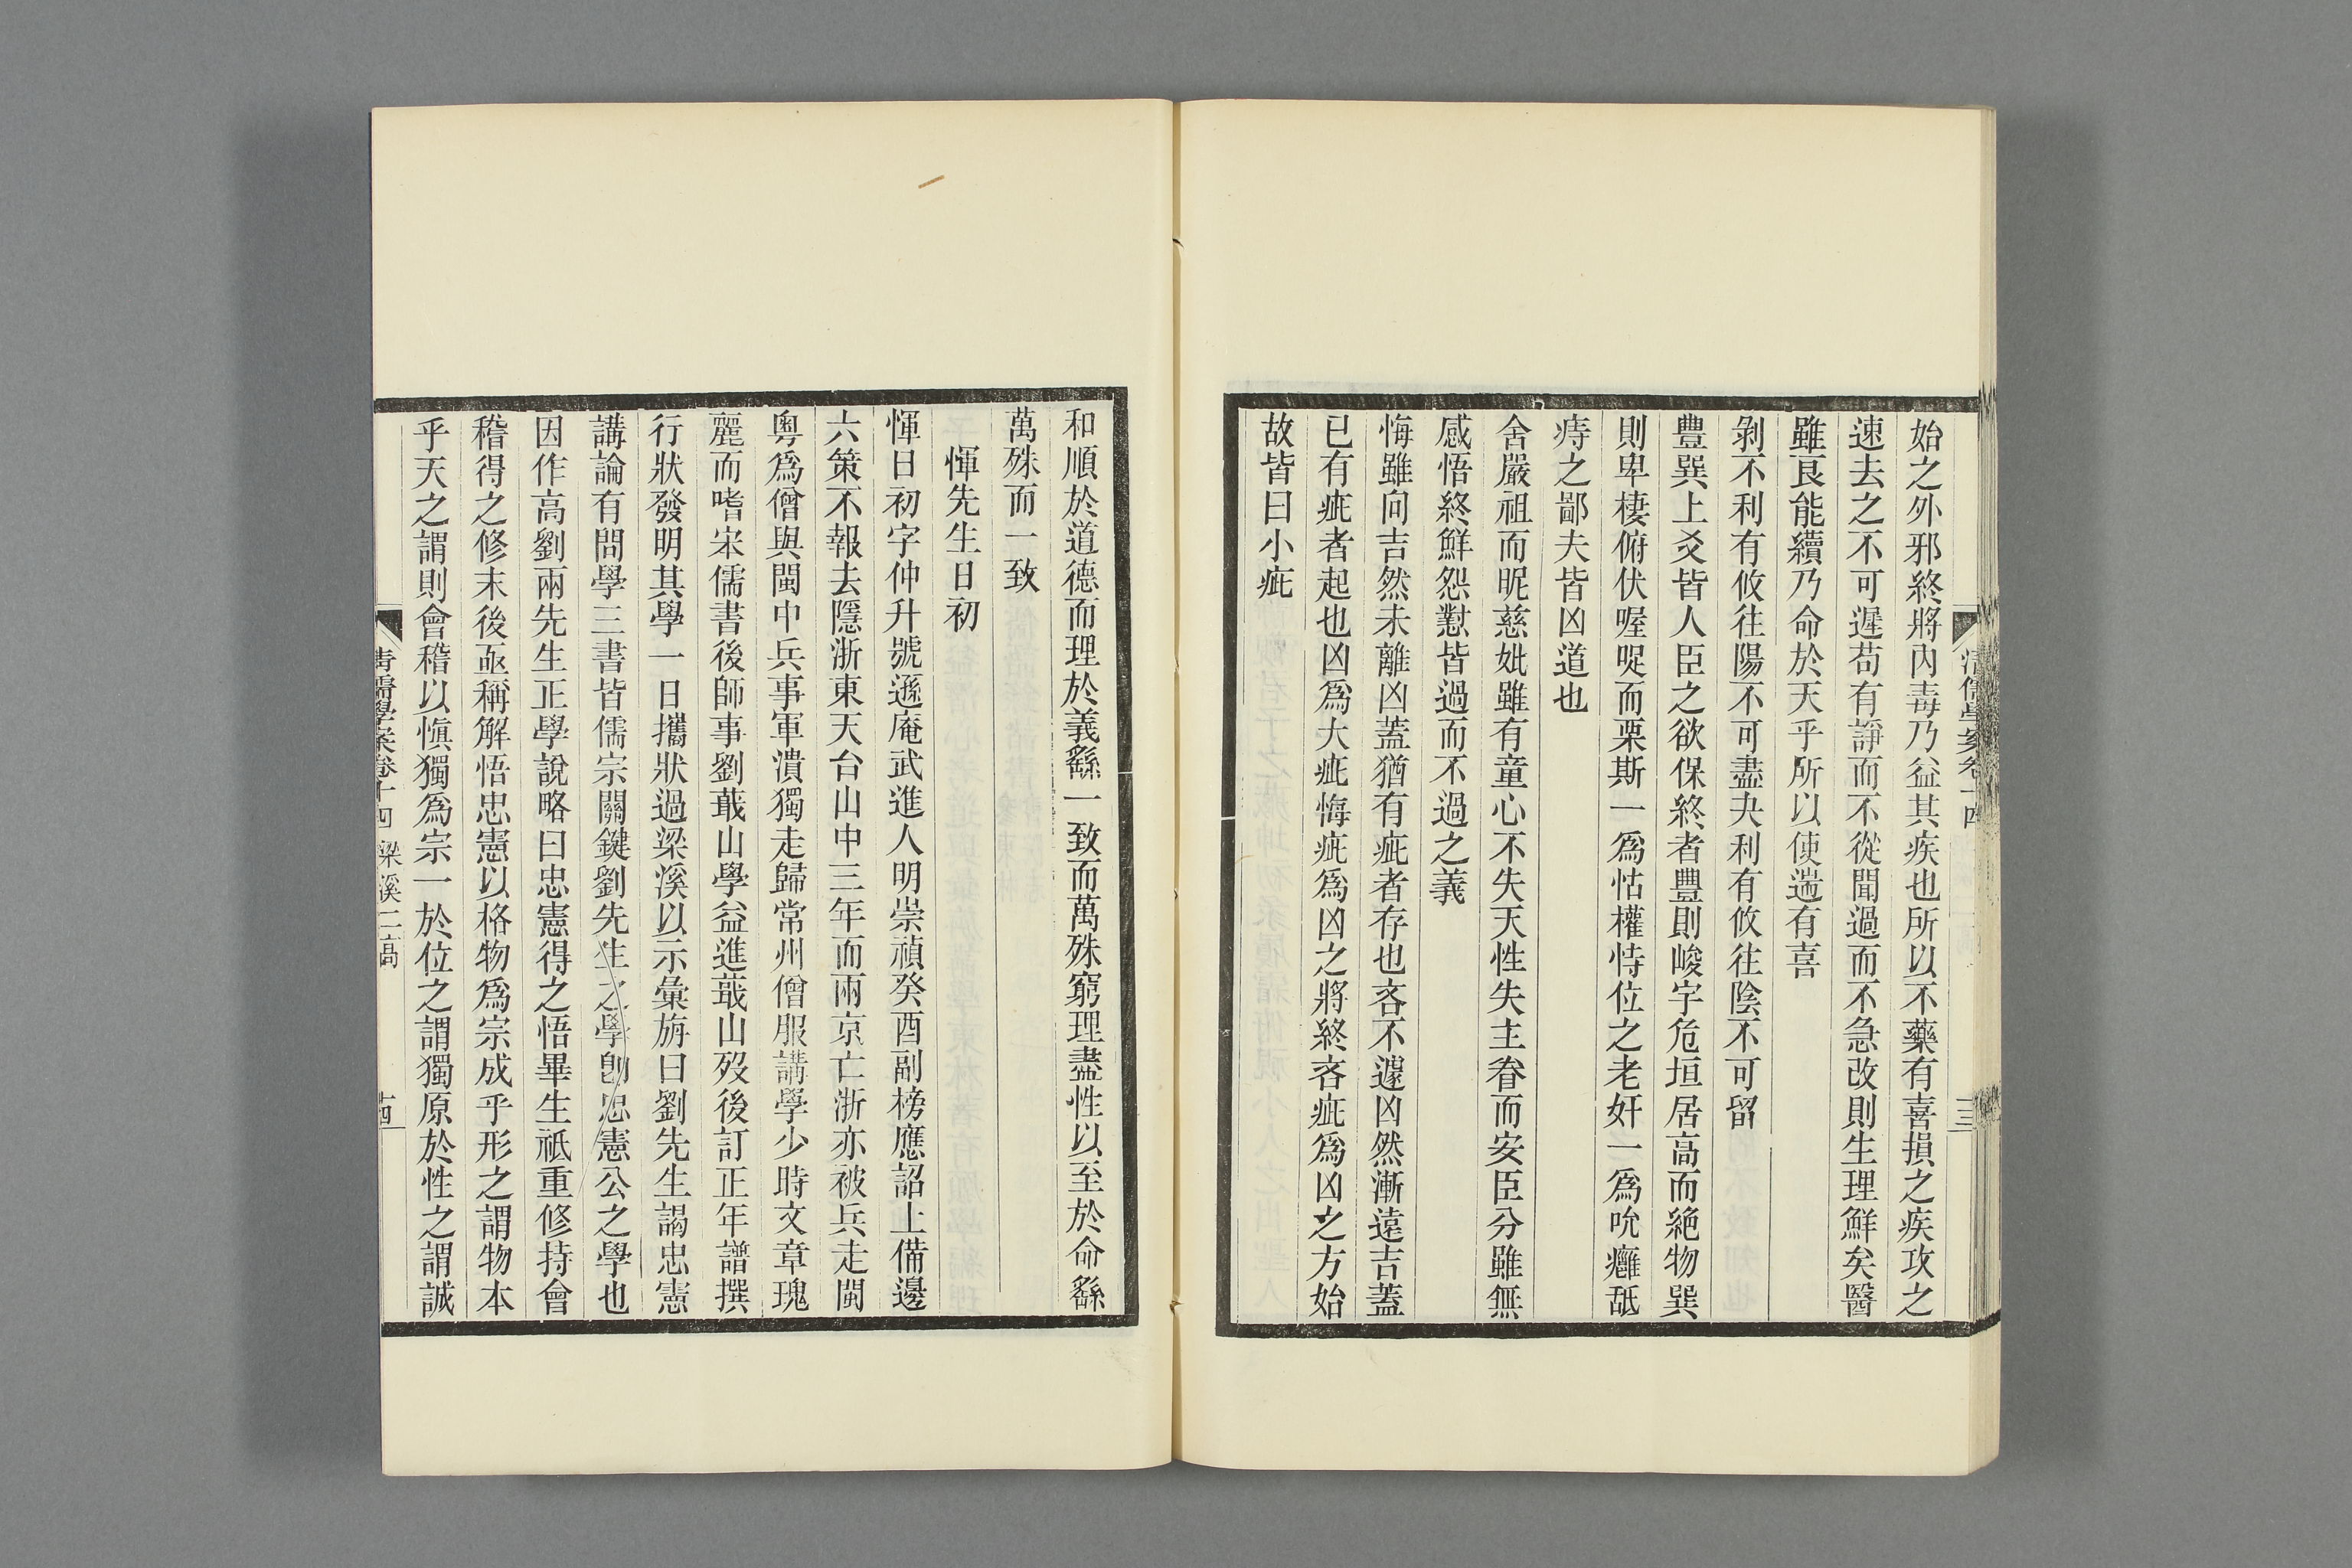 始之外邪終將內毒乃益其疾也所以不藥有喜損之疾攻之
速去之不可遲苟有諍而不從聞過而不急改則生理鮮矣醫
雖良能續乃命於天乎所以使遄有喜
剝不利有攸往陽不可盡夬利有攸往陰不可留
豐巽上爻皆人臣之欲保終者豐則峻宇危垣居高而絕物巽
則卑棲俯伏喔咿而栗斯一爲怙權恃位之老奸一爲吮癰舐
痔之鄙夫皆凶道也
舍嚴祖而昵慈妣雖有童心不失天性失主眷而安臣分雖無
感悟終鮮怨懟皆過而不過之義
悔雖向吉然未離凶蓋猶有疵者存也吝不遽凶然漸遠吉蓋
已有疵者起也凶爲大疵悔疵爲凶之將終吝疵爲凶之方始
故皆曰小疵
清儒學案卷十四
三
和順於道德而理於義繇一致而萬殊窮理盡性以至於命繇
萬殊而一致
惲先生日初
惲日初字仲升號遜庵武進人明崇禎癸酉副榜應詔上備邊
六策不報去隱浙東天台山中三年而兩京亡浙亦被兵走閩
粵爲僧與閩中兵事軍潰獨走歸常州僧服講學少時文章瑰
麗而嗜宋儒書後師事劉蕺山學益進蕺山歿後訂正年譜撰
行狀發明其學一日攜狀過梁溪以示彙旃曰劉先生謁忠憲
講論有問學三書皆儒宗關鍵劉先生之學卽忠憲公之學也
因作高劉兩先生正學說略曰忠憲得之悟畢生祗重修持會
稽得之修末後亟稱解悟忠憲以格物爲宗成乎形之謂物本
乎天之謂則會稽以愼獨爲宗一於位之謂獨原於性之謂誠
清儒學案卷十四 梁溪二高
十四